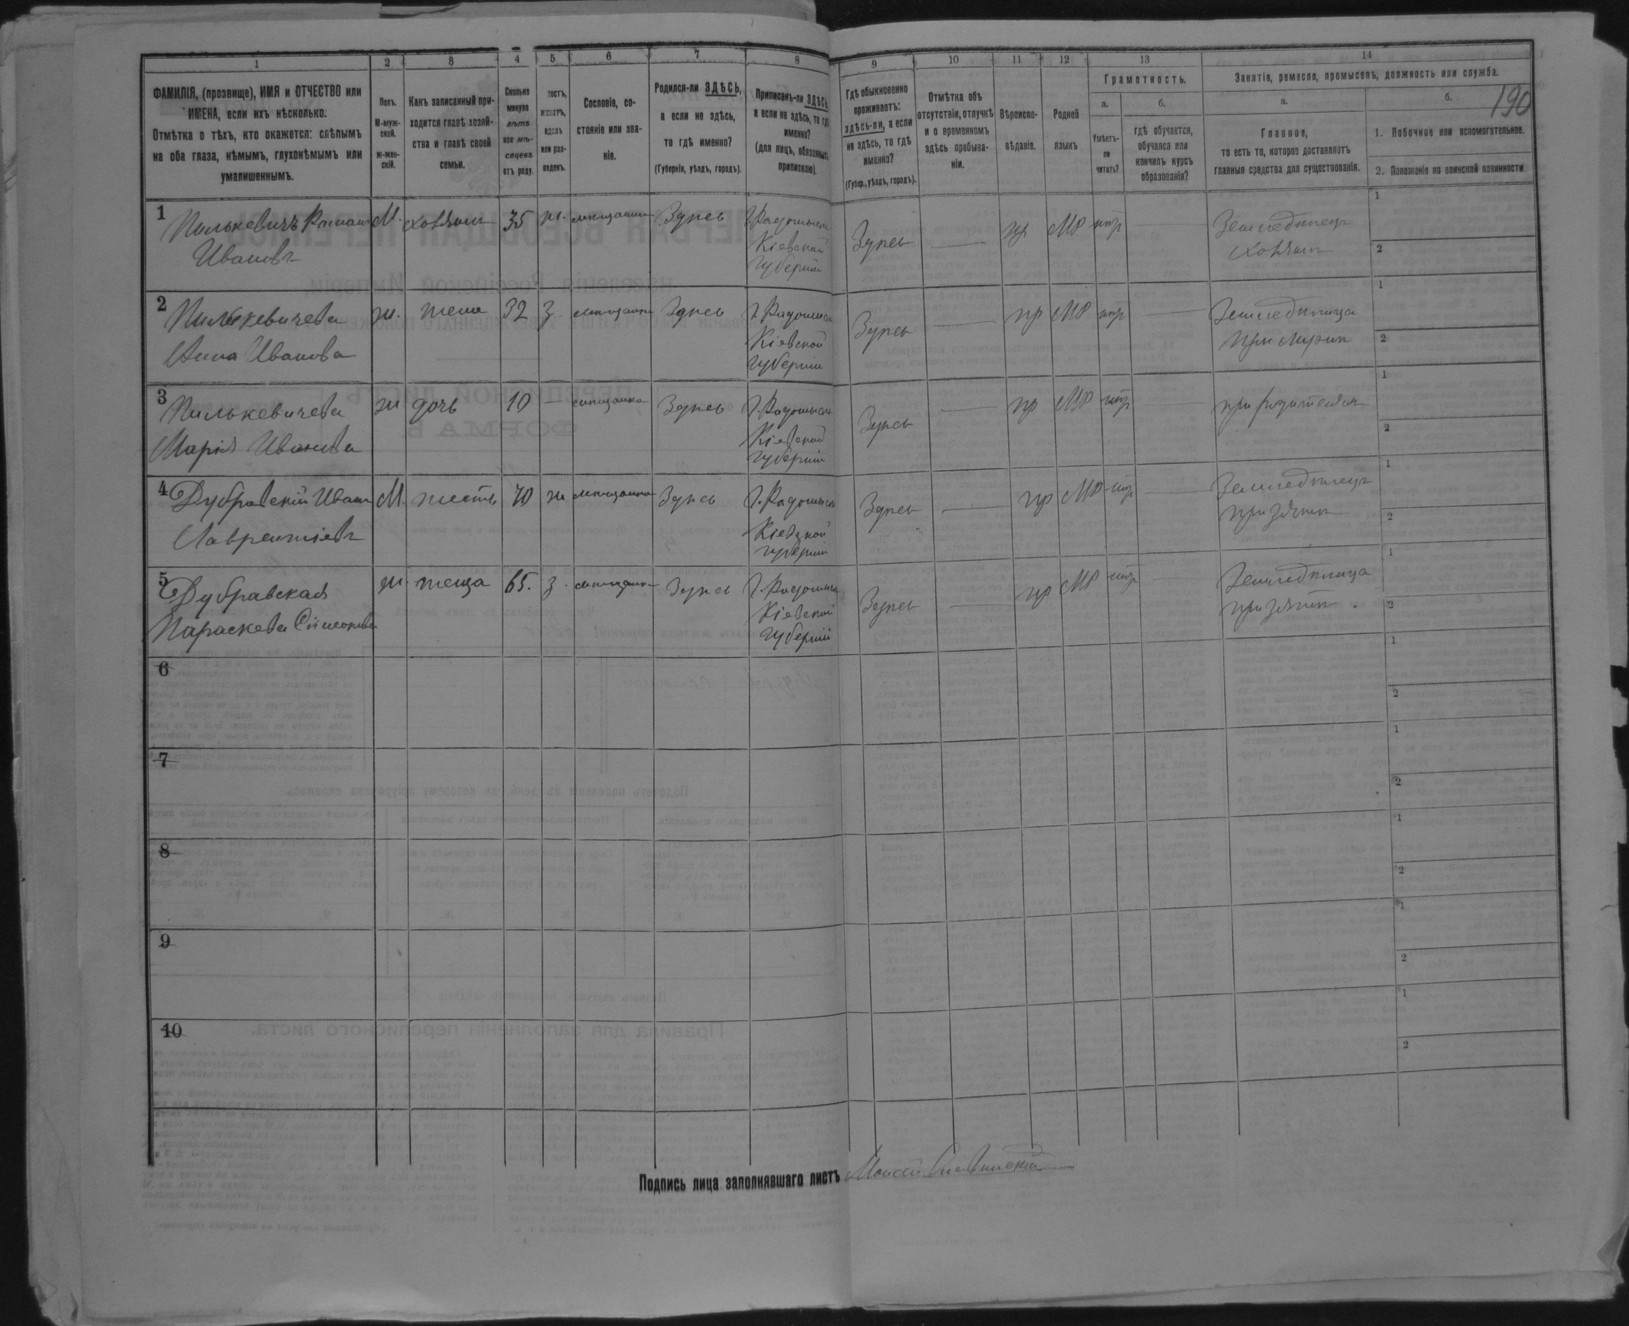 1 2 3 4 5 6 7 8 9 10 11 12 13 14
190
ФАМИЛІЯ, (прозвище), ИМЯ и ОТЧЕСТВО или
ИМЕНА, если ихъ нѣсколько.
Отмѣтка о тѣхъ, кто окажется: слѣпымъ
на оба глаза, нѣмымъ, глухонѣмымъ или
умалишеннымъ.
Полъ.
М-муж-
ской.
Ж-жен-
скій.
Какъ записанный при-
ходится главѣ хозяй-
ства и главѣ своей
семьи.
Сколько
минуло
лѣтъ
или мѣ-
сяцевъ
отъ роду.
Сословіе, со-
стояніе или зва-
ніе.
Родился-ли ЗДѢСЬ,
а если не здѣсь,
то гдѣ именно?
(Губернія, уѣздъ, городъ).
Приписанъ-ли ЗДѢСЬ,
а если не здѣсь, то гдѣ
именно?
(для лицъ, обязанныхъ
припискою)
Гдѣ обыкновенно
проживаетъ:
здѣсь-ли, а если
не здѣсь, то гдѣ
именно?
(Губер., уѣздъ, городъ).
Отмѣтка объ
отсутствіи, отлучкѣ
и о временномъ
здѣсь пребыва-
ніи.
Вѣроиспо-
вѣданіе.
Родной
языкъ
Грамотность.
а.
Умѣетъ-
ли
читать?
б.
гдѣ обучается,
обучался или
кончилъ курсъ
образованія?
Занятіе, ремесло, промыселъ, должность или служба.
а.
Главное,
то есть то, которое доставляетъ
главныя средства для существованія.
б.
1. Побочное или вспомогательное.
2. Положеніе по воинской повинности
1 Пилькевичъ Романъ М. хозяинъ 35 ж. мещанинъ Здесь г. Радомысль Здесь пр МР нтр Земледелецъ 1
Ивановъ Кіевской хозяинъ 2
губерніи
2 Пилькевичева ж. жена 32 з. мещанка Здесь г. Радомысль Здесь пр МР нтр Земледелица 1
Анна Иванова Кіевской при мужи 2
губерніи
3 Пилькевичева ж дочь 10 — мещанка Здесь г. Радомысль Здесь пр МР нтр при родителях 1
Марія Иванова Кіевской 2
губерніи
4 Дубравскій Иванъ М. тесть 70 ж мещанинъ Здесь г. Радомысль Здесь пр МР нтр Земледелецъ 1
Лаврентіевъ Кіевской при зятьи 2
губерніи
5 Дубравская ж. теща 65. з. мещанка Здесь г. Радомысль Здесь пр МР нтр Земледелица 1
Параскева Симеонова Кіевской при зятьи. 2
губерніи
6 1
2
7 1
2
8 1
2
9 1
2
10 1
2
Подпись лица заполнявшаго листъ Моисей